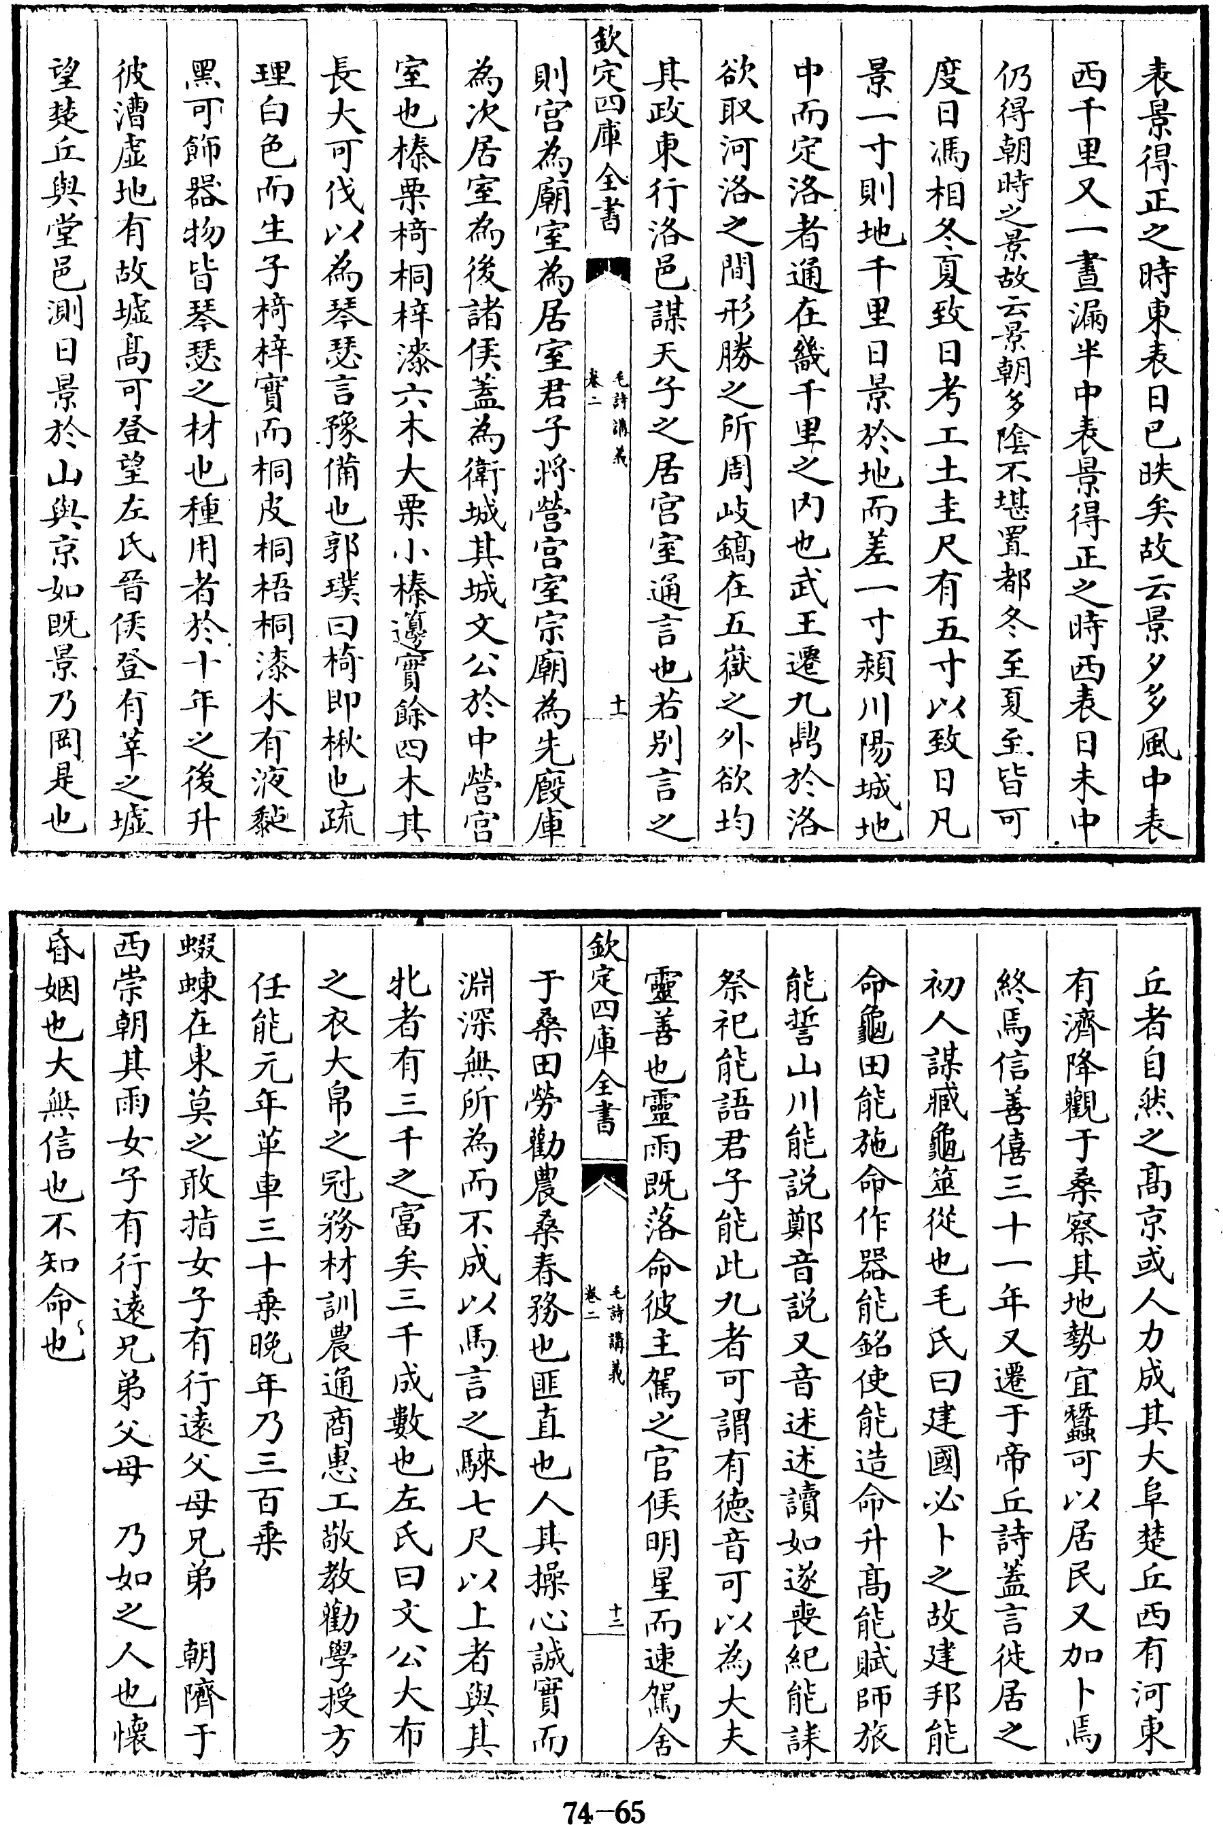 表景得正之時東表日已昳矣故云景夕多風中表
西千里又一晝漏半中表景得正之時西表日未中
仍得朝時之景故云景朝多陰不堪置都冬至夏至皆可
度日馮相冬夏致日考工土圭尺有五寸以致日凡
景一寸則地千里日景於地而差一寸潁川陽城地
中而定洛者通在畿千里之内也武王遷九鼎於洛
欲取河洛之間形勝之所周岐鎬在五嶽之外欲均
其政東行洛邑謀天子之居宫室通言也若别言之
欽定四庫全書
毛詩講義
卷二
十一
則宫為廟室為居室君子將營宫室宗廟為先廐庫
為次居室為後諸侯蓋為衛城其城文公於中營宫
室也榛栗椅桐梓漆六木大栗小榛籩實餘四木其
長大可伐以為琴瑟言豫備也郭璞曰椅即楸也疏
理白色而生子椅梓實而桐皮桐梧桐漆木有液黏
黑可飾器物皆琴瑟之材也種用者於十年之後升
彼漕虛地有故墟高可登望左氏晉侯登有莘之墟
望楚丘與堂邑測日景於山與京如既景乃岡是也
丘者自然之高京或人力成其大阜楚丘西有河東
有濟降觀于桑察其地勢宜蠶可以居民又加卜焉
終焉信善僖三十一年又遷于帝丘詩蓋言徙居之
初人謀臧龜筮從也毛氏曰建國必卜之故建邦能
命龜田能施命作器能銘使能造命升高能賦師旅
能誓山川能説鄭音説又音述述讀如遂喪紀能誄
祭祀能語君子能此九者可謂有德音可以為大夫
靈善也靈雨既落命彼主駕之官候明星而速駕舍
欽定四庫全書
毛詩講義
卷二
十二
于桑田勞勸農桑春務也匪直也人其操心誠實而
淵深無所為而不成以馬言之騋七尺以上者與其
牝者有三千之富矣三千成數也左氏曰文公大布
之衣大帛之冠務材訓農通商惠工敬教勸學授方
任能元年革車三十乘晚年乃三百乘
蝃蝀在東莫之敢指女子有行遠父母兄弟 朝隮于
西崇朝其雨女子有行遠兄弟父母 乃如之人也懷
昏姻也大無信也不知命也
74-65